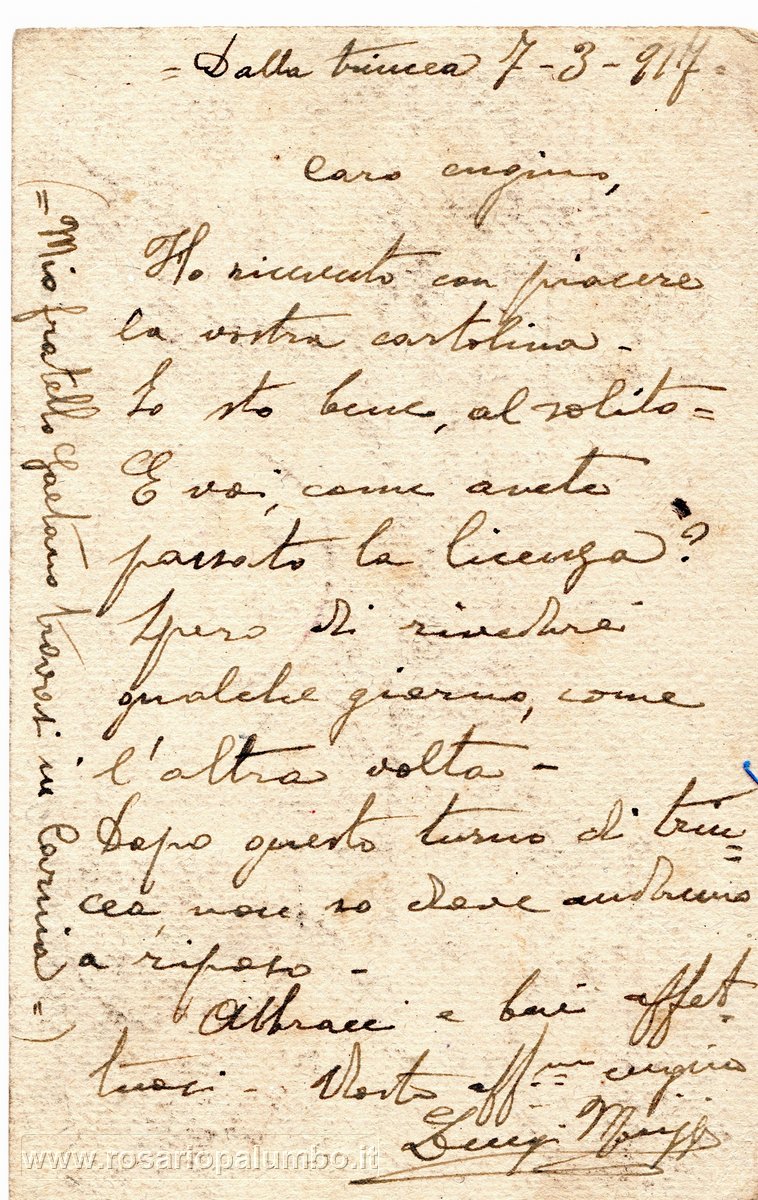 = Dalla trincea 7-3-917 =
Caro cugino,
Ho ricevuto con piacere
la vostra cartolina -
Io sto bene, al solito =
E voi, come avete
passato la licenza?
Spero di rivederci
qualche giorno, come
l'altra volta -
Dopo questo turno di trin=
cea, non so dove andremo
a riposo -
Abbracci e baci affet=
tuosi - Vostro aff.mo cugino
Luigi
(= Mio fratello Gaetano trovasi in Carnia =)
www.rosariopalumbo.it